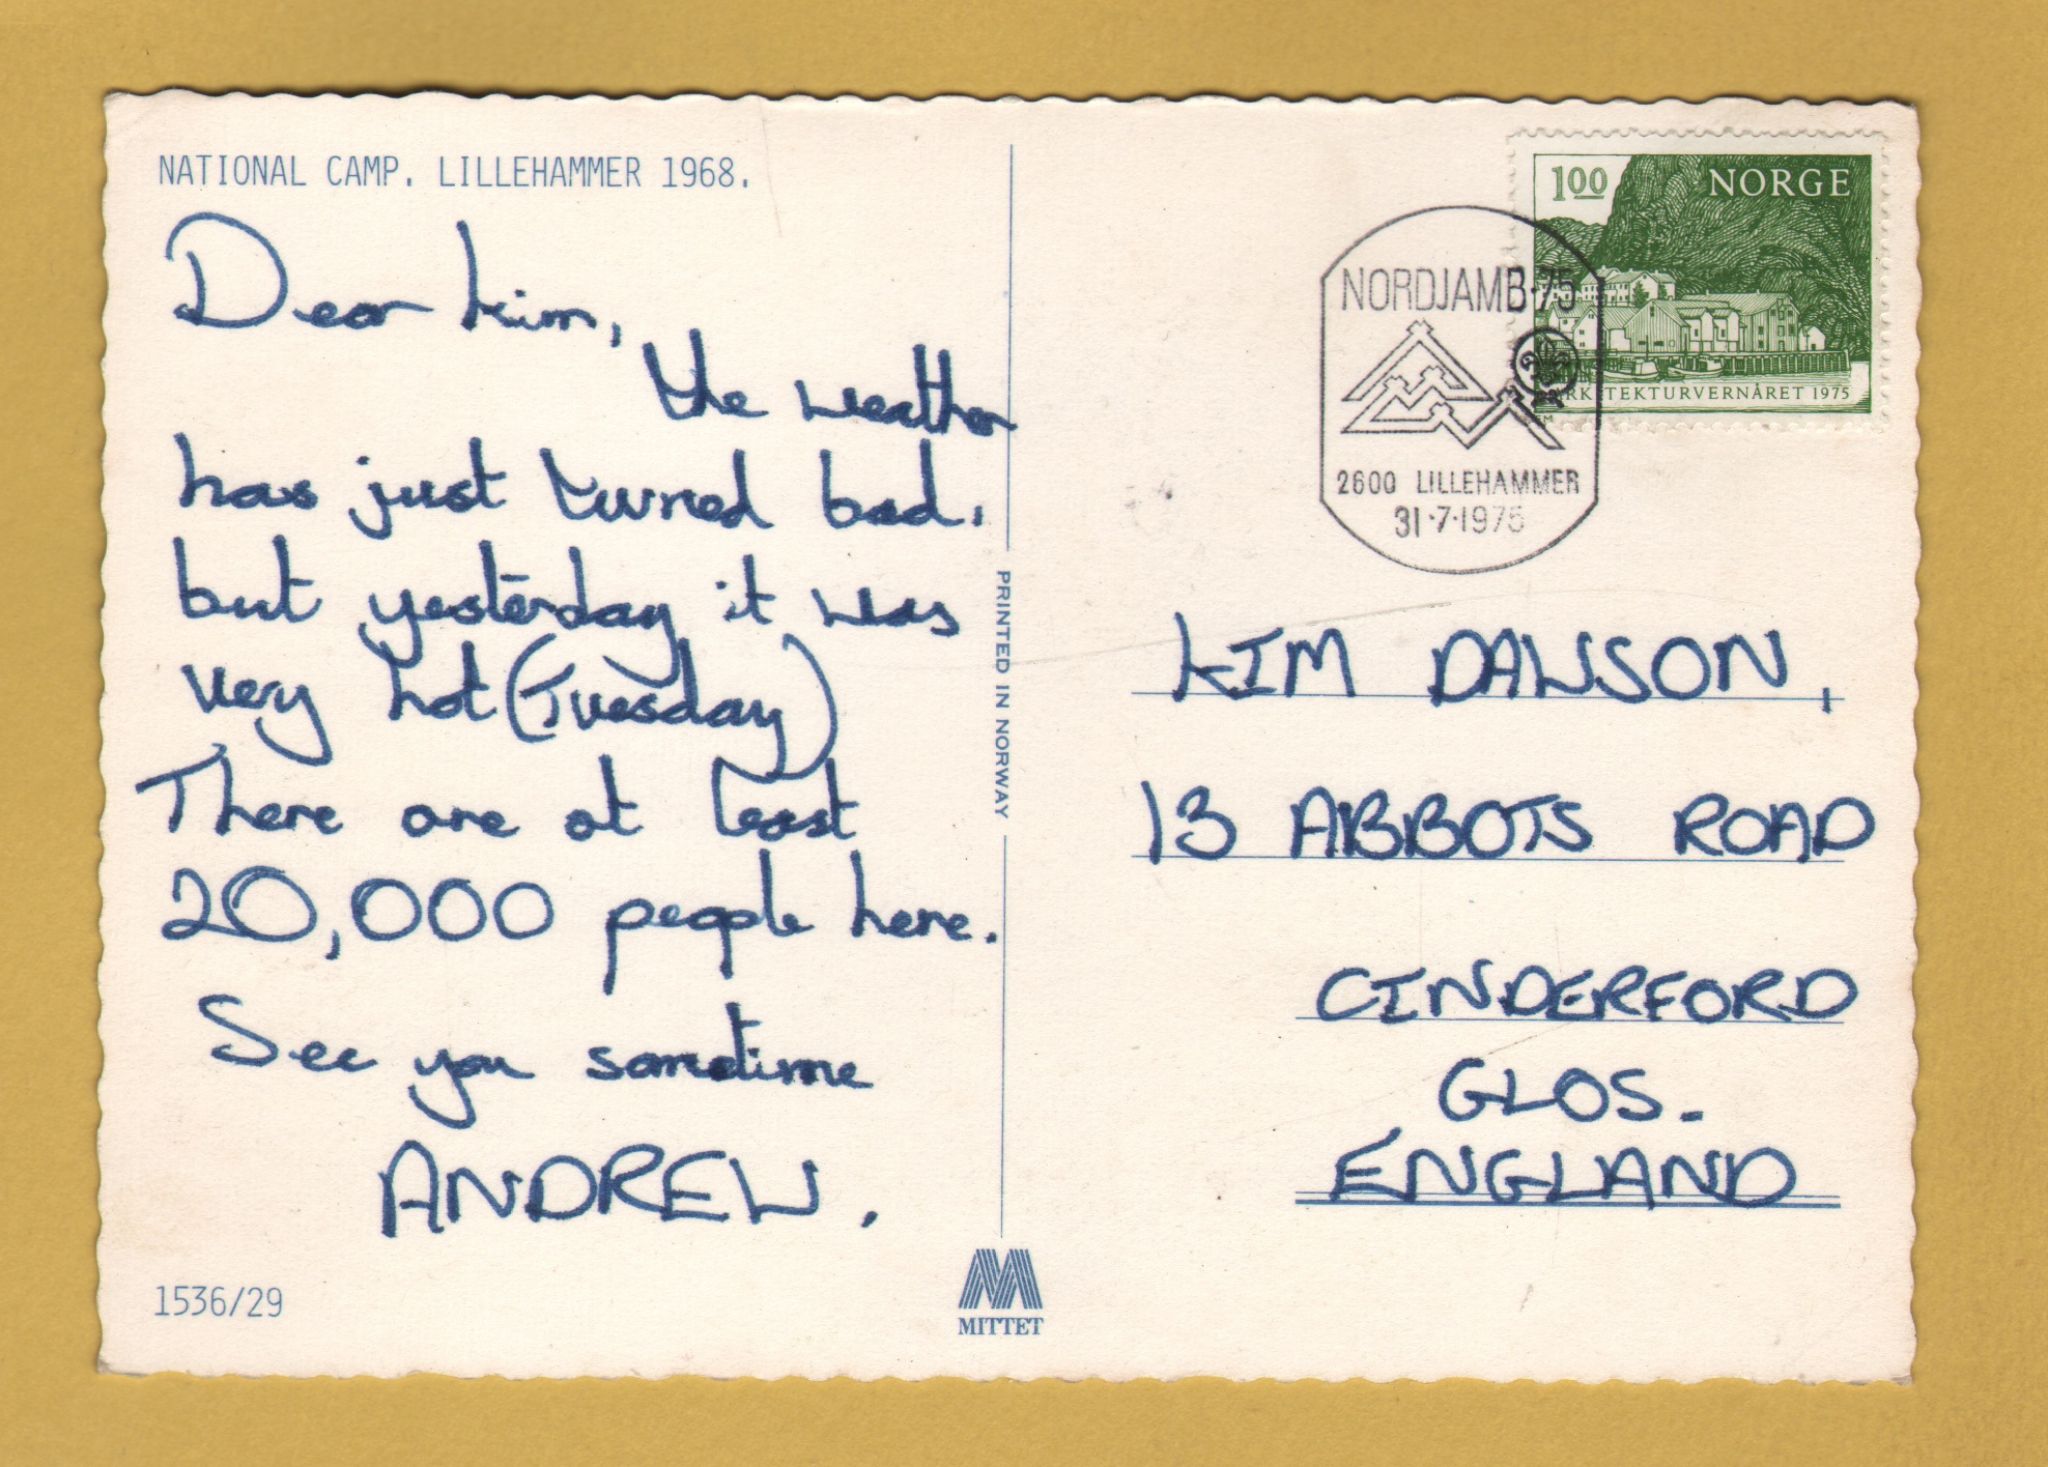 NATIONAL CAMP. LILLEHAMMER 1968.
Dear Kim,
the weather
has just turned bad,
but yesterday it was
very hot (Tuesday)
There are at least
20,000 people here.
See you sometime
ANDREW.
1536/29
PRINTED IN NORWAY
MITTET
100 NORGE
ARKITEKTURVERNÅRET 1975
NORDJAMB-75
2600 LILLEHAMMER
31·7·1975
KIM DAWSON,
13 ABBOTS ROAD
CINDERFORD
GLOS.
ENGLAND